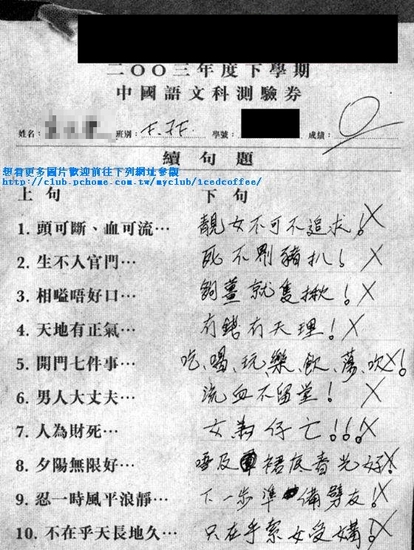 二〇〇三年度下學期
中國語文科測驗券
姓名: 班別: F.2E 學號: 成績: 0
續句題
想看更多圖片歡迎前往下列網址參觀
http://club.pchome.com.tw/myclub/icedcoffee/
上句 下句
1. 頭可斷、血可流⋯ 靚女不可不追求! X
2. 生不入官門⋯ 死不剮豬扒! X
3. 相嗌唔好口⋯ 就隻揪! X
4. 天地有正氣⋯ 冇錢冇天理! X
5. 開門七件事⋯ 吃、喝、玩、樂、飲、蕩、吹! X
6. 男人大丈夫⋯ 流血不留堂! X
7. 人為財死⋯ 女為仔亡!!! X
8. 夕陽無限好⋯ 唔及裙底春光好! X
9. 忍一時風平浪靜⋯ 下一步準備劈友! X
10. 不在乎天長地久⋯ 只在乎索女受媾! X